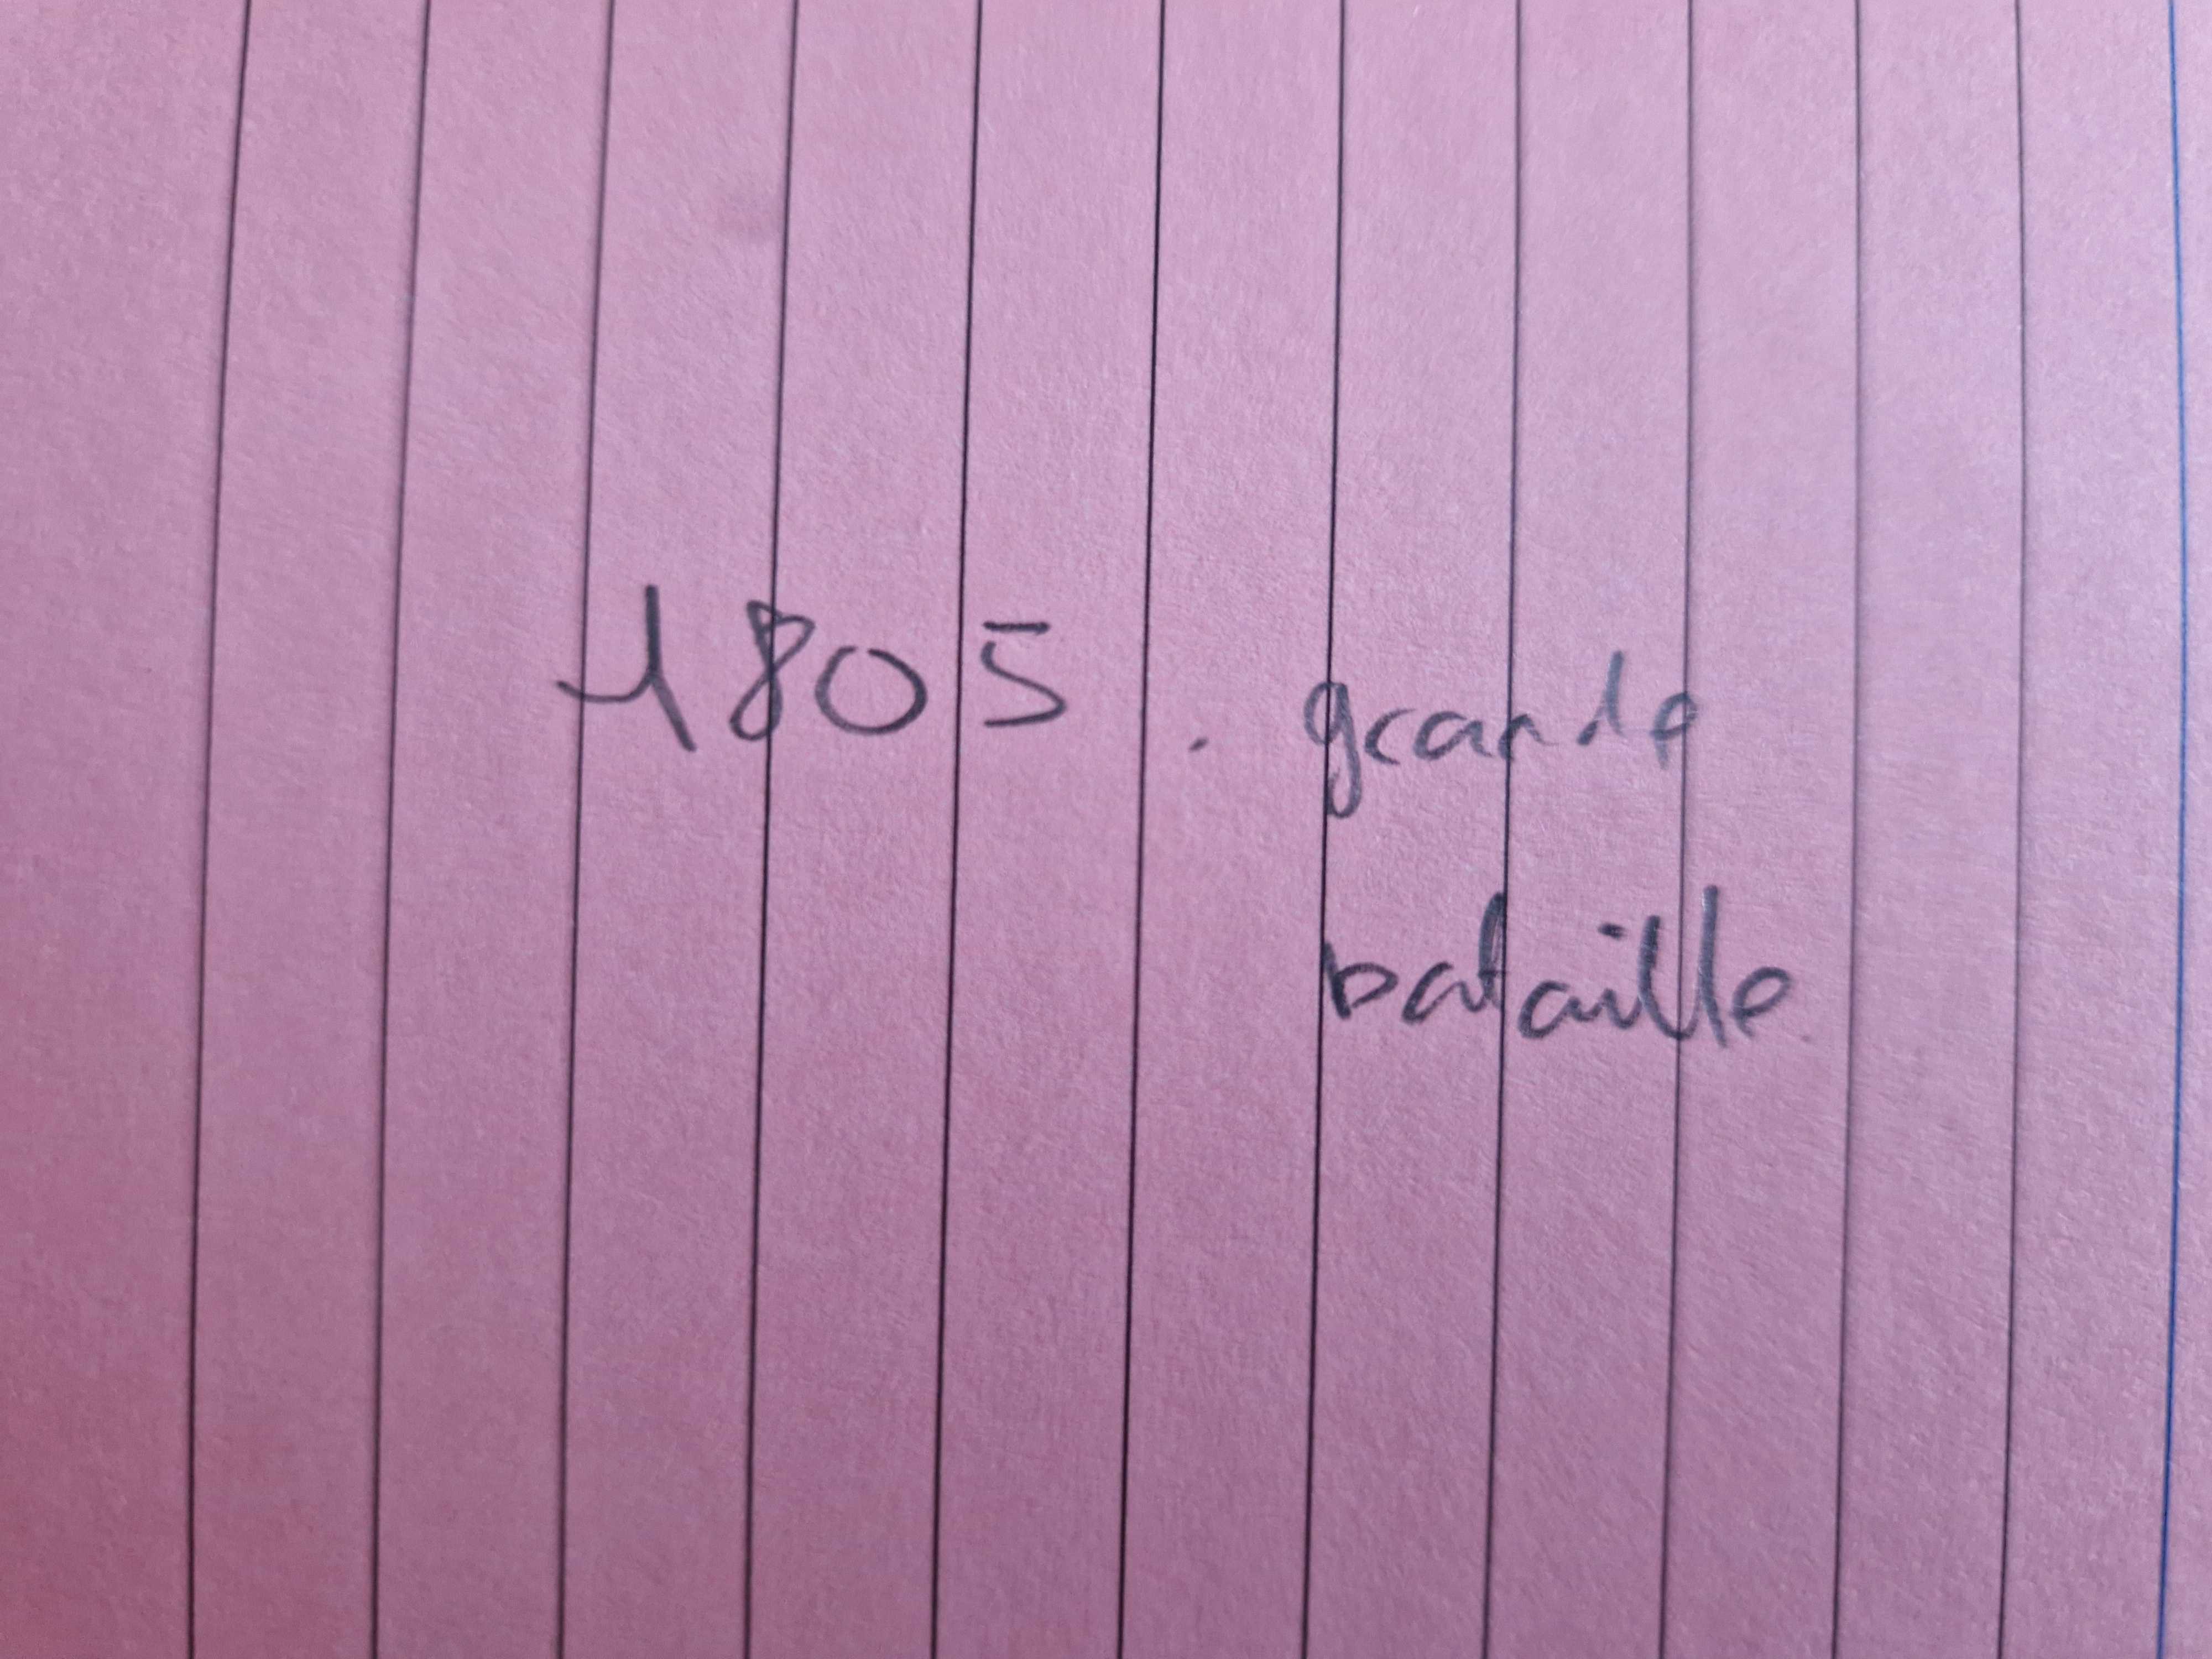 1805. grande
bataille